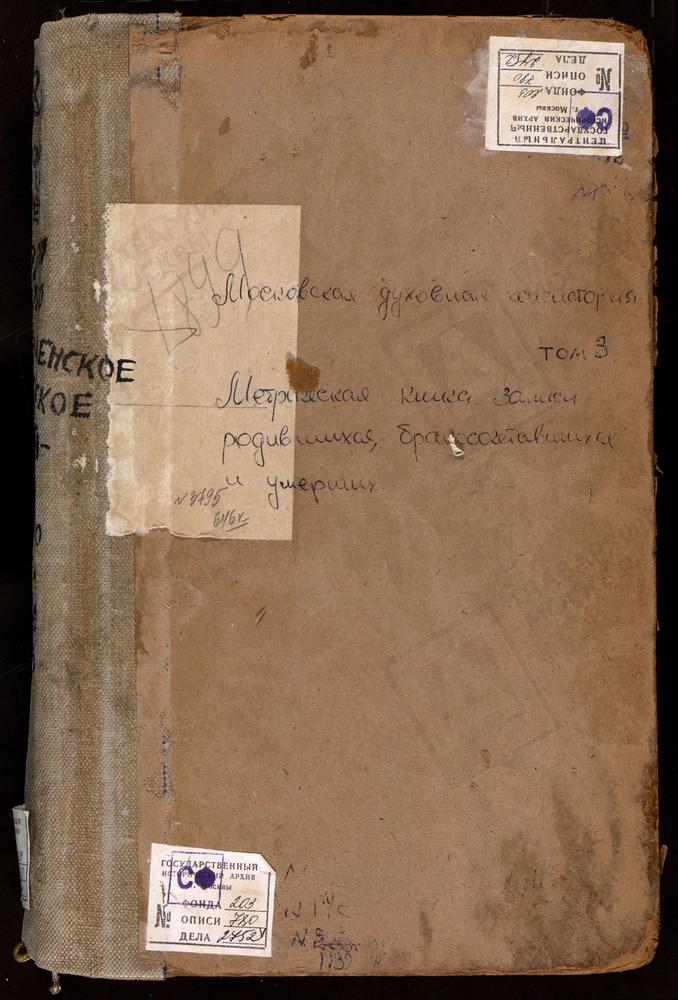 ЦЕНТРАЛЬНЫЙ
ГОСУДАРСТВЕННЫЙ
ИСТОРИЧЕСКИЙ АРХИВ
г. Москвы
ФОНДА 203
№ ОПИСИ 780
ДЕЛА 2752
1899
Московская духовная консистория
ЕНСКОЕ
КОЕ
том 3
Метрическая книга записи
родившихся, бракосочетавшихся
и умерших.
N 2795
ГОСУДАРСТВЕННЫЙ
ИСТОРИЧЕСКИЙ АРХИВ
МОСКВЫ
ФОНДА 203
№ ОПИСИ 780
ДЕЛА 2752